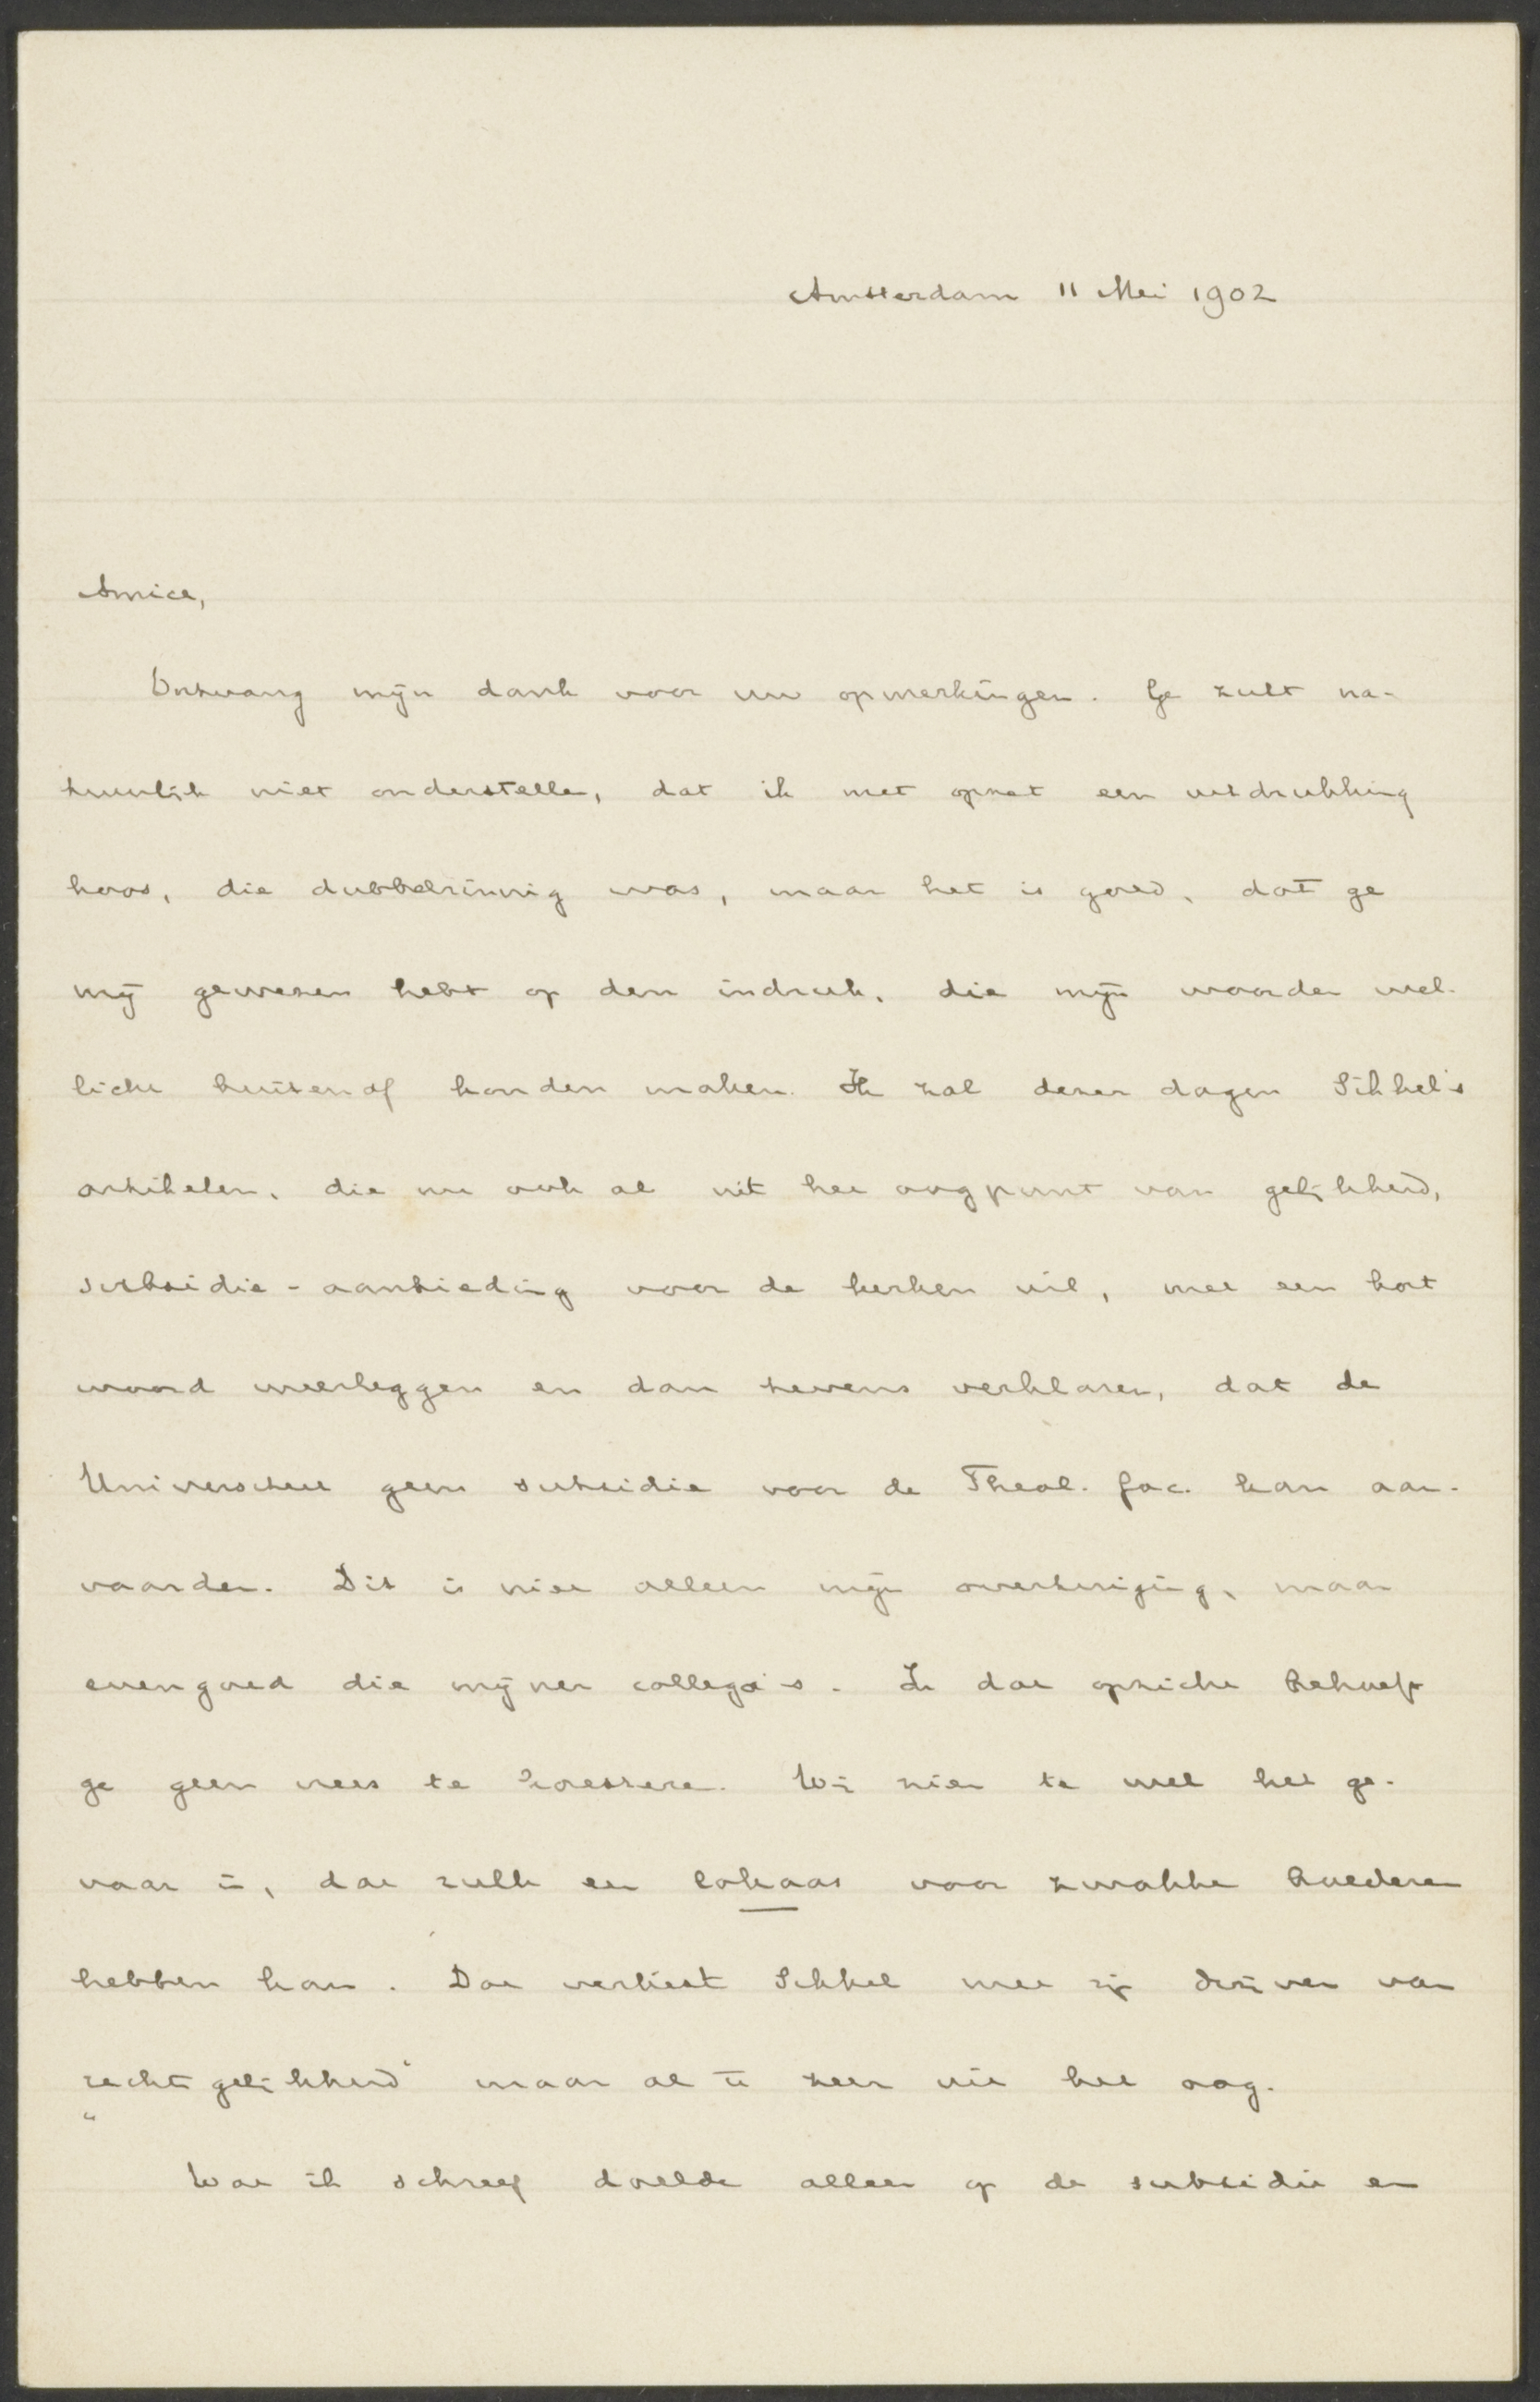 Amsterdam 11 Mei 1902
Amice,
Ontvang mijn dank voor uw opmerkingen. Ge zult na-
tuurlijk niet onderstellen, dat ik met opzet een uitdrukking
koos, die dubbelzinnig was, maar het is goed, dat ge
mij gewezen hebt op den indruk, die mijn woorden wel-
licht buitenaf konden maken. Ik zal dezer dagen Sikkel's
artikelen, die nu ook al uit het oogpunt van gelijkheid,
subsidie-aanbieding voor de kerken wil, met een kort
woord weerleggen en dan tevens verklaren, dat de
Universiteit geen subsidie voor de Theol. fac. kan aan-
vaarden. Dit is niet alleen mijn overtuiging, maar
evengoed die mijner collega's. In dat opzicht behoeft
ge geen vrees te koesteren. Wij zien te wel het ge-
vaar in, dat zulk een lokaas voor zwakke broederen
hebben kan. Dat verliest Sikkel met zijn drijven van
„rechtsgelijkheid" maar al te zeer uit het oog.
Wat ik schreef doelde alleen op de subsidie en